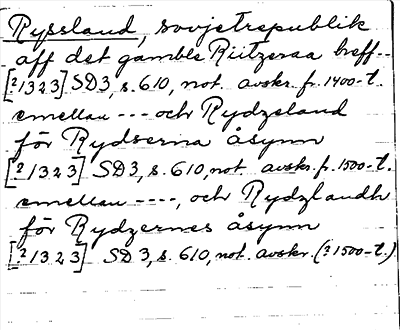 Ryssland, sovjetrepublik
aff det gamble Riitzeraa breff--
[?1323] SD3, s. 610, not. avskr. fr. 1400-t.
emellan --- och Rydzeland
för Rydserna åsynn
[?1323] SD3, s. 610, not. avskr. fr. 1500-t.
emellan ----, och Rydzlandh
för Rydzernes åsynn
[?1323] SD3, s. 610, not. avskr. (?1500-t.)